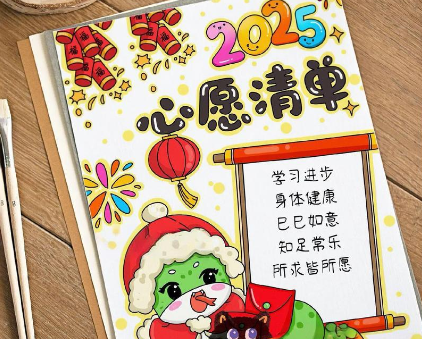 2025
心愿清单
学习进步
身体健康
巳巳如意
知足常乐
所求皆所愿